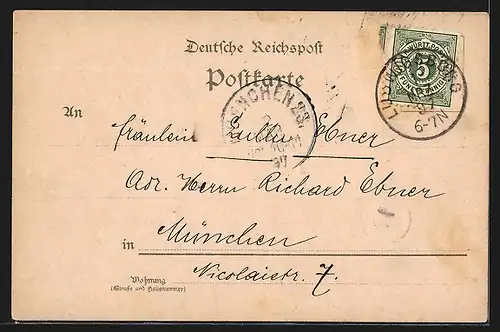 Deutsche Reichspost
Postkarte
5
LUDWIGSBURG
97
6-7N
MÜNCHEN 23
97
An
Fräulein Ebner
Adr. Herrn Richard Ebner
in München
Wohnung
(Straße und Hausnummer)
Nicolaistr. 7.